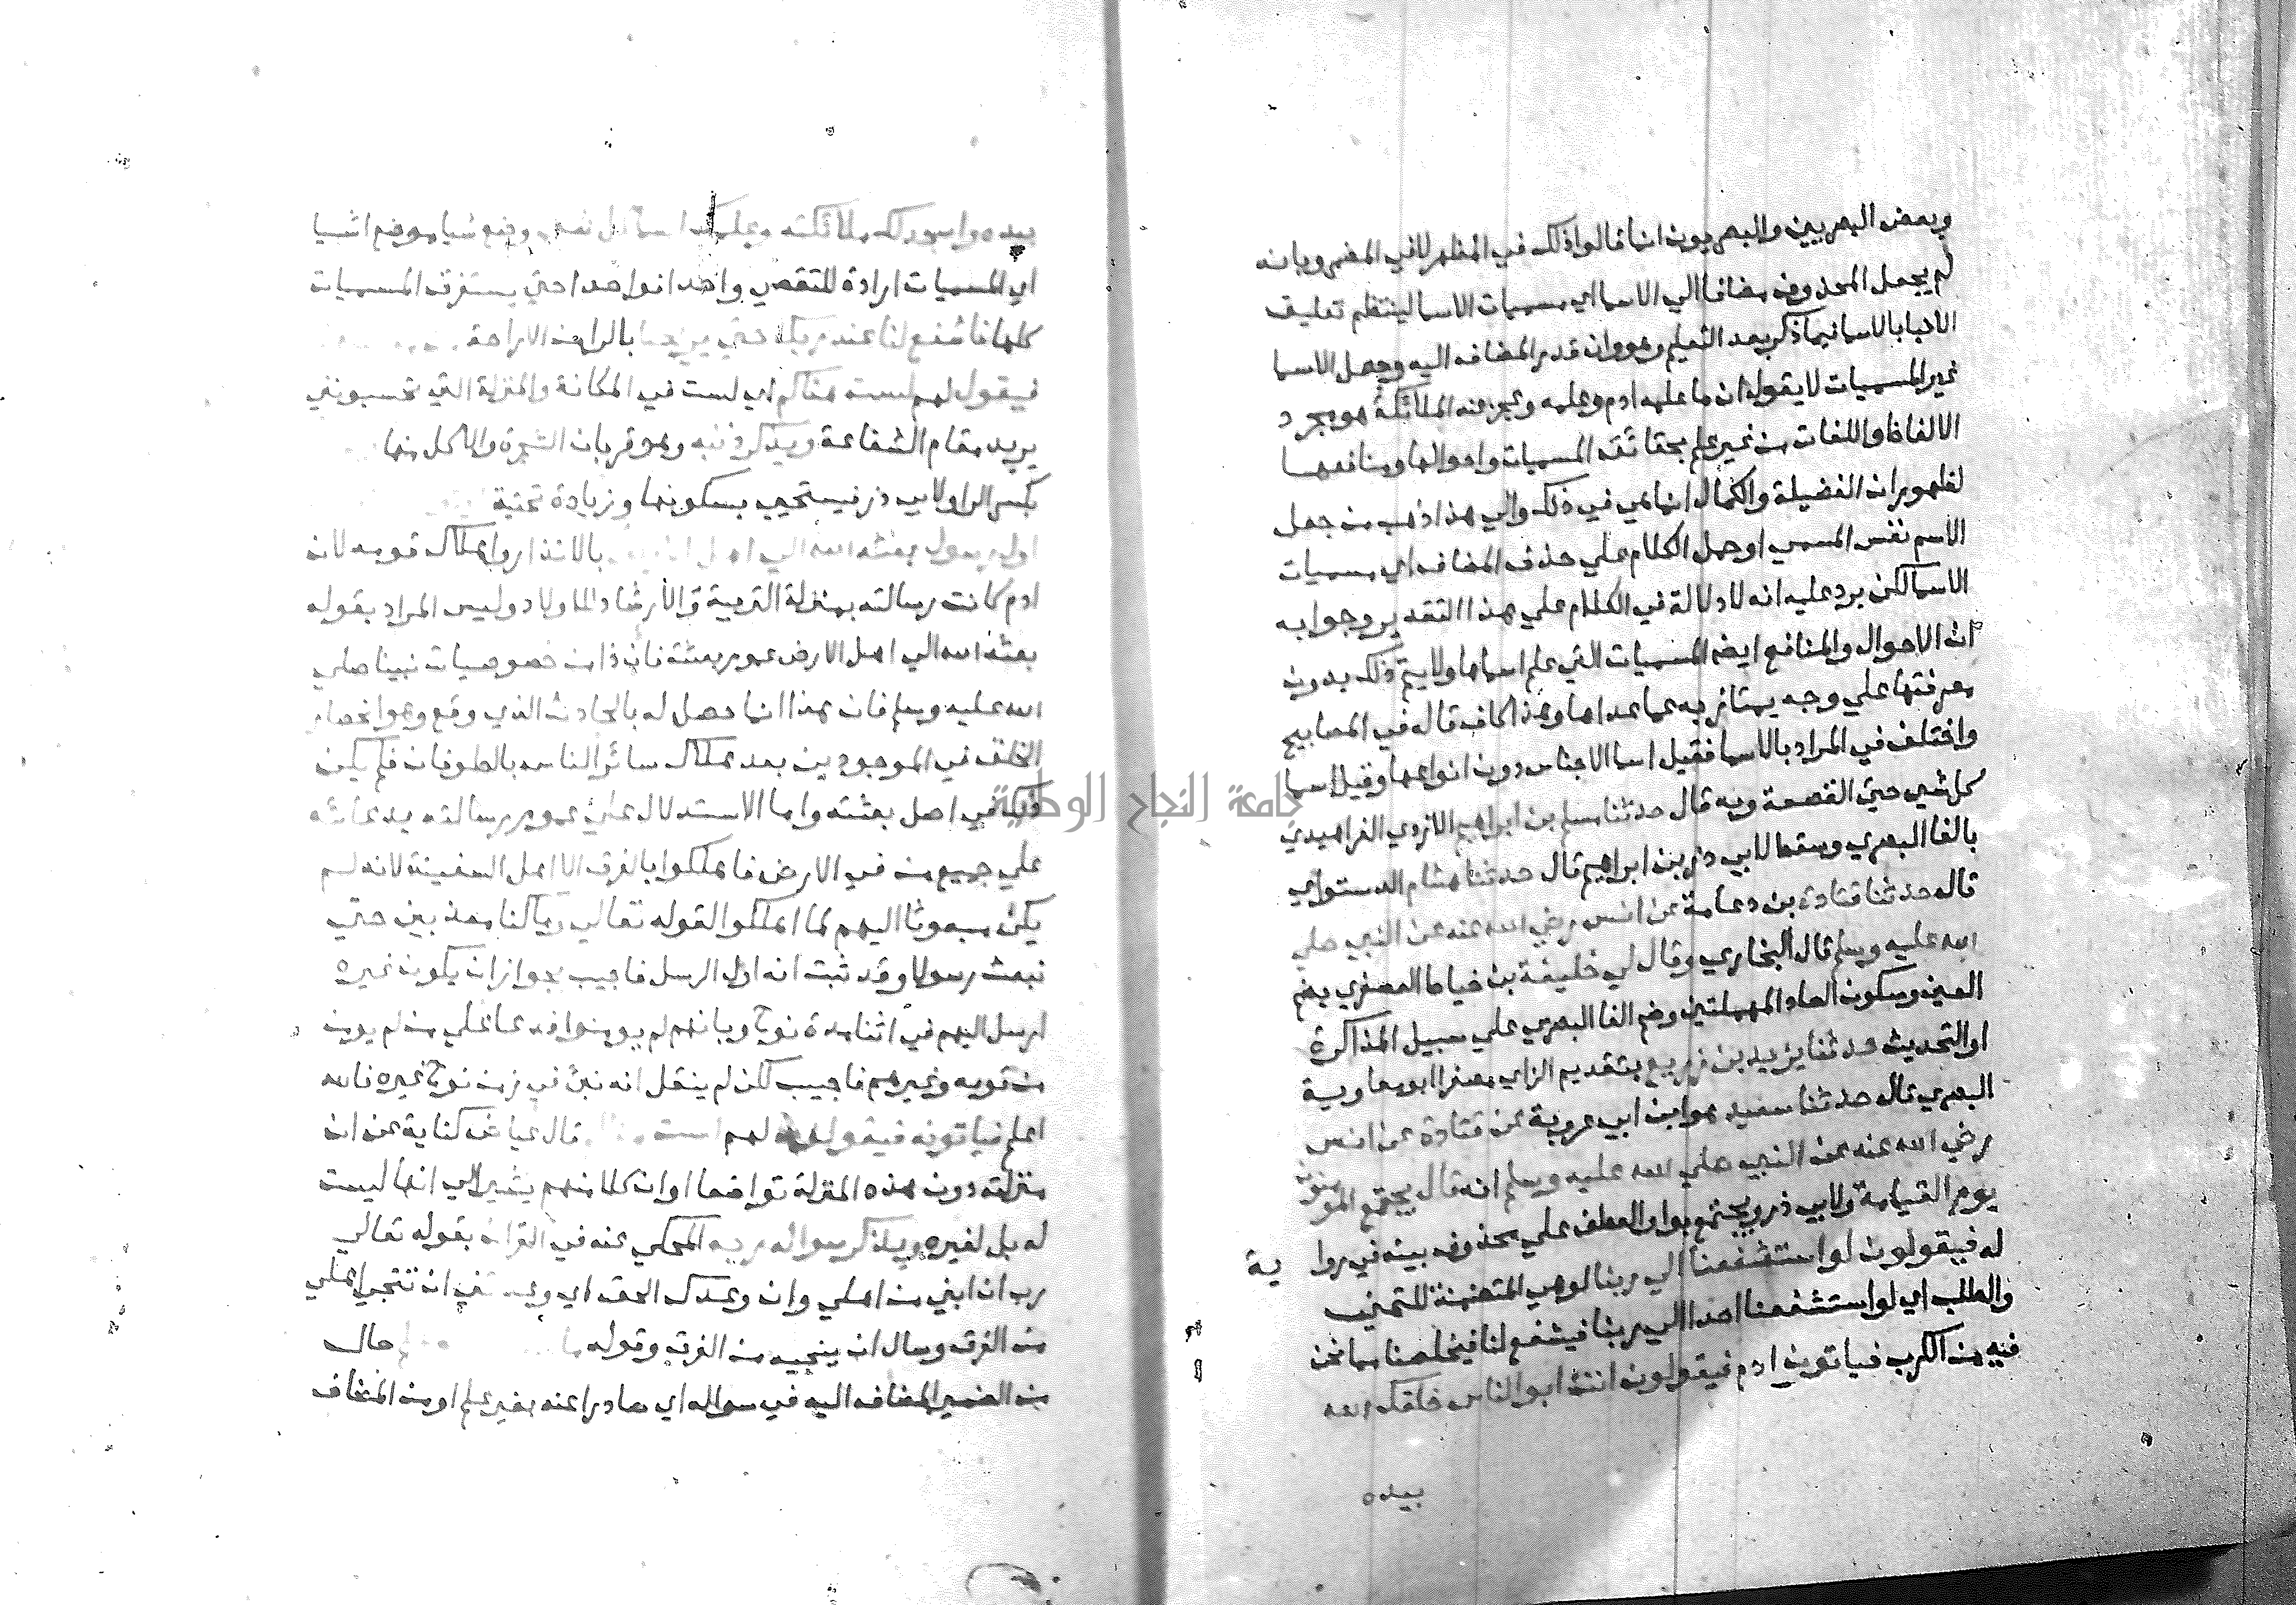 وبعض البصريين والبصريون انما قالوا ذلك في المظهر لا في المضمر وبانه
لم يجعل المحذوف مضافا الي الاسما اي مسميات الاسما لينتظم تعليق
الانبا بالاسما فيما ذكر بعد التعليم وهو وان قدر المضاف اليه وجعل الاسما
غير المسميات لا يقول ان ما علمه ادم وعلمه وعجز عنه الملائكة هو مجرد
الالفاظ واللغات من غير علم بحقائق المسميات واحوالها ومنافعها
لظهور ان الفضيلة والكمال انما هي في ذلك والي هذا ذهب من جعل
الاسم نفس المسمي او حمل الكلام علي حذف المضاف اي مسميات
الاسما لكن يرد عليه انه لا دلالة في الكلام علي هذا التقدير وجوابه
ان الاحوال والمنافع ايضا المسميات التي علم اسماها ولا يتم ذلك بدون
معرفتها علي وجه يمتاز به عما عداها وهذا كاف قاله في المصابيح
واختلف في المراد بالاسما فقيل اسما الاجناس دون انواعها وقيل اسما
كل شي حتي القصعة وبه قال حدثنا مسلم بن ابراهيم الازدي الفراهيدي
بالفا البصري وسقط لابي ذر بن ابراهيم قال حدثنا هشام الدستواي
قال حدثنا قتادة بن دعامة عن انس رضي الله عنه عن النبي صلي
الله عليه وسلم قال البخاري وقال لي خليفة بن خياط العصفري بضم
العين وسكون الصاد المهملتين وضم الفا البصري علي سبيل المذاكرة
او التحديث حدثنا يزيد بن زريع بتقديم الزاي مصغرا ابو معاوية
البصري قال حدثنا سعيد هو ابن ابي عروبة عن قتادة عن انس
رضي الله عنه عن النبي صلي الله عليه وسلم انه قال يجتمع المومنون
يوم القيامة ولابي ذر ويجتمع بواو العطف علي محذوف بينه في رواية
له فيقولون لو استشفعنا الي ربنا لو هي المتضمنة للتمني
والطلب اي لو استشفعنا احدا الي ربنا فيشفع لنا فيخلصنا مما نحن
فيه من الكرب فياتون ادم فيقولون انت ابو الناس خلقك الله
بيده
بيده واسجد لك ملائكته وعلمك اسما كل شي وضع شيا موضع اشيا
اي المسميات ارادة للتقصي واحدا فواحدا حتي يستغرق المسميات
كلها فاشفع لنا عند ربك حتي يريحنا بالرا من الاراحة
فيقول لهم لست هناكم اي لست في المكانة والمنزلة التي تحسبونني
يريد مقام الشفاعة ويذكر ذنبه وهو قربان الشجرة والاكل منها
بكسر الرا ولابي ذر فيستحي بسكونها وزيادة تحتية
اول رسول بعثه الله الي اهل بالانذار واهلاك قومه لان
ادم كانت رسالته بمنزلة التربية والارشاد للاولاد وليس المراد بقوله
بعثه الله الي اهل الارض عموم بعثته فان ذا من خصوصيات نبينا صلي
الله عليه وسلم فان هذا انما حصل له بالحادث الذي وقع وهو انحصار
الخلق في الموجودين بعد هلاك سائر الناس بالطوفان فلم يكن
ذلك في اصل بعثته واما الاستدلال علي عموم رسالته بدعائه
علي جميع من في الارض فاهلكوا بالغرق الا اهل السفينة لانه لم
يكن مبعوثا اليهم لما اهلكوا لقوله تعالي وما كنا معذبين حتي
نبعث رسولا وقد ثبت انه اول الرسل فاجيب بجواز ان يكون غيره
ارسل اليهم في اثنا مدة نوح وبانهم لم يومنوا فدعا علي من لم يومن
من قومه وغيرهم فاجيب لكن لم ينقل انه نبئ في زمن نوح غيره فالله
اعلم فياتونه فيقول لهم لست قال عياض كناية عن ان
منزلته دون هذه المنزلة تواضعا او ان كلا منهم يشير الي انها ليست
له بل لغيره ويذكر سواله ربه المحكي عنه في القران بقوله تعالي
رب ان ابني من اهلي وان وعدك الحق اي وعدتني ان تنجي اهلي
من الغرق وسال ان ينجيه من الغرق وقوله حال
من الضمير المضاف اليه في سواله اي صادرا عنه بغير علم او من المضاف
جامعة النجاح الوطنية